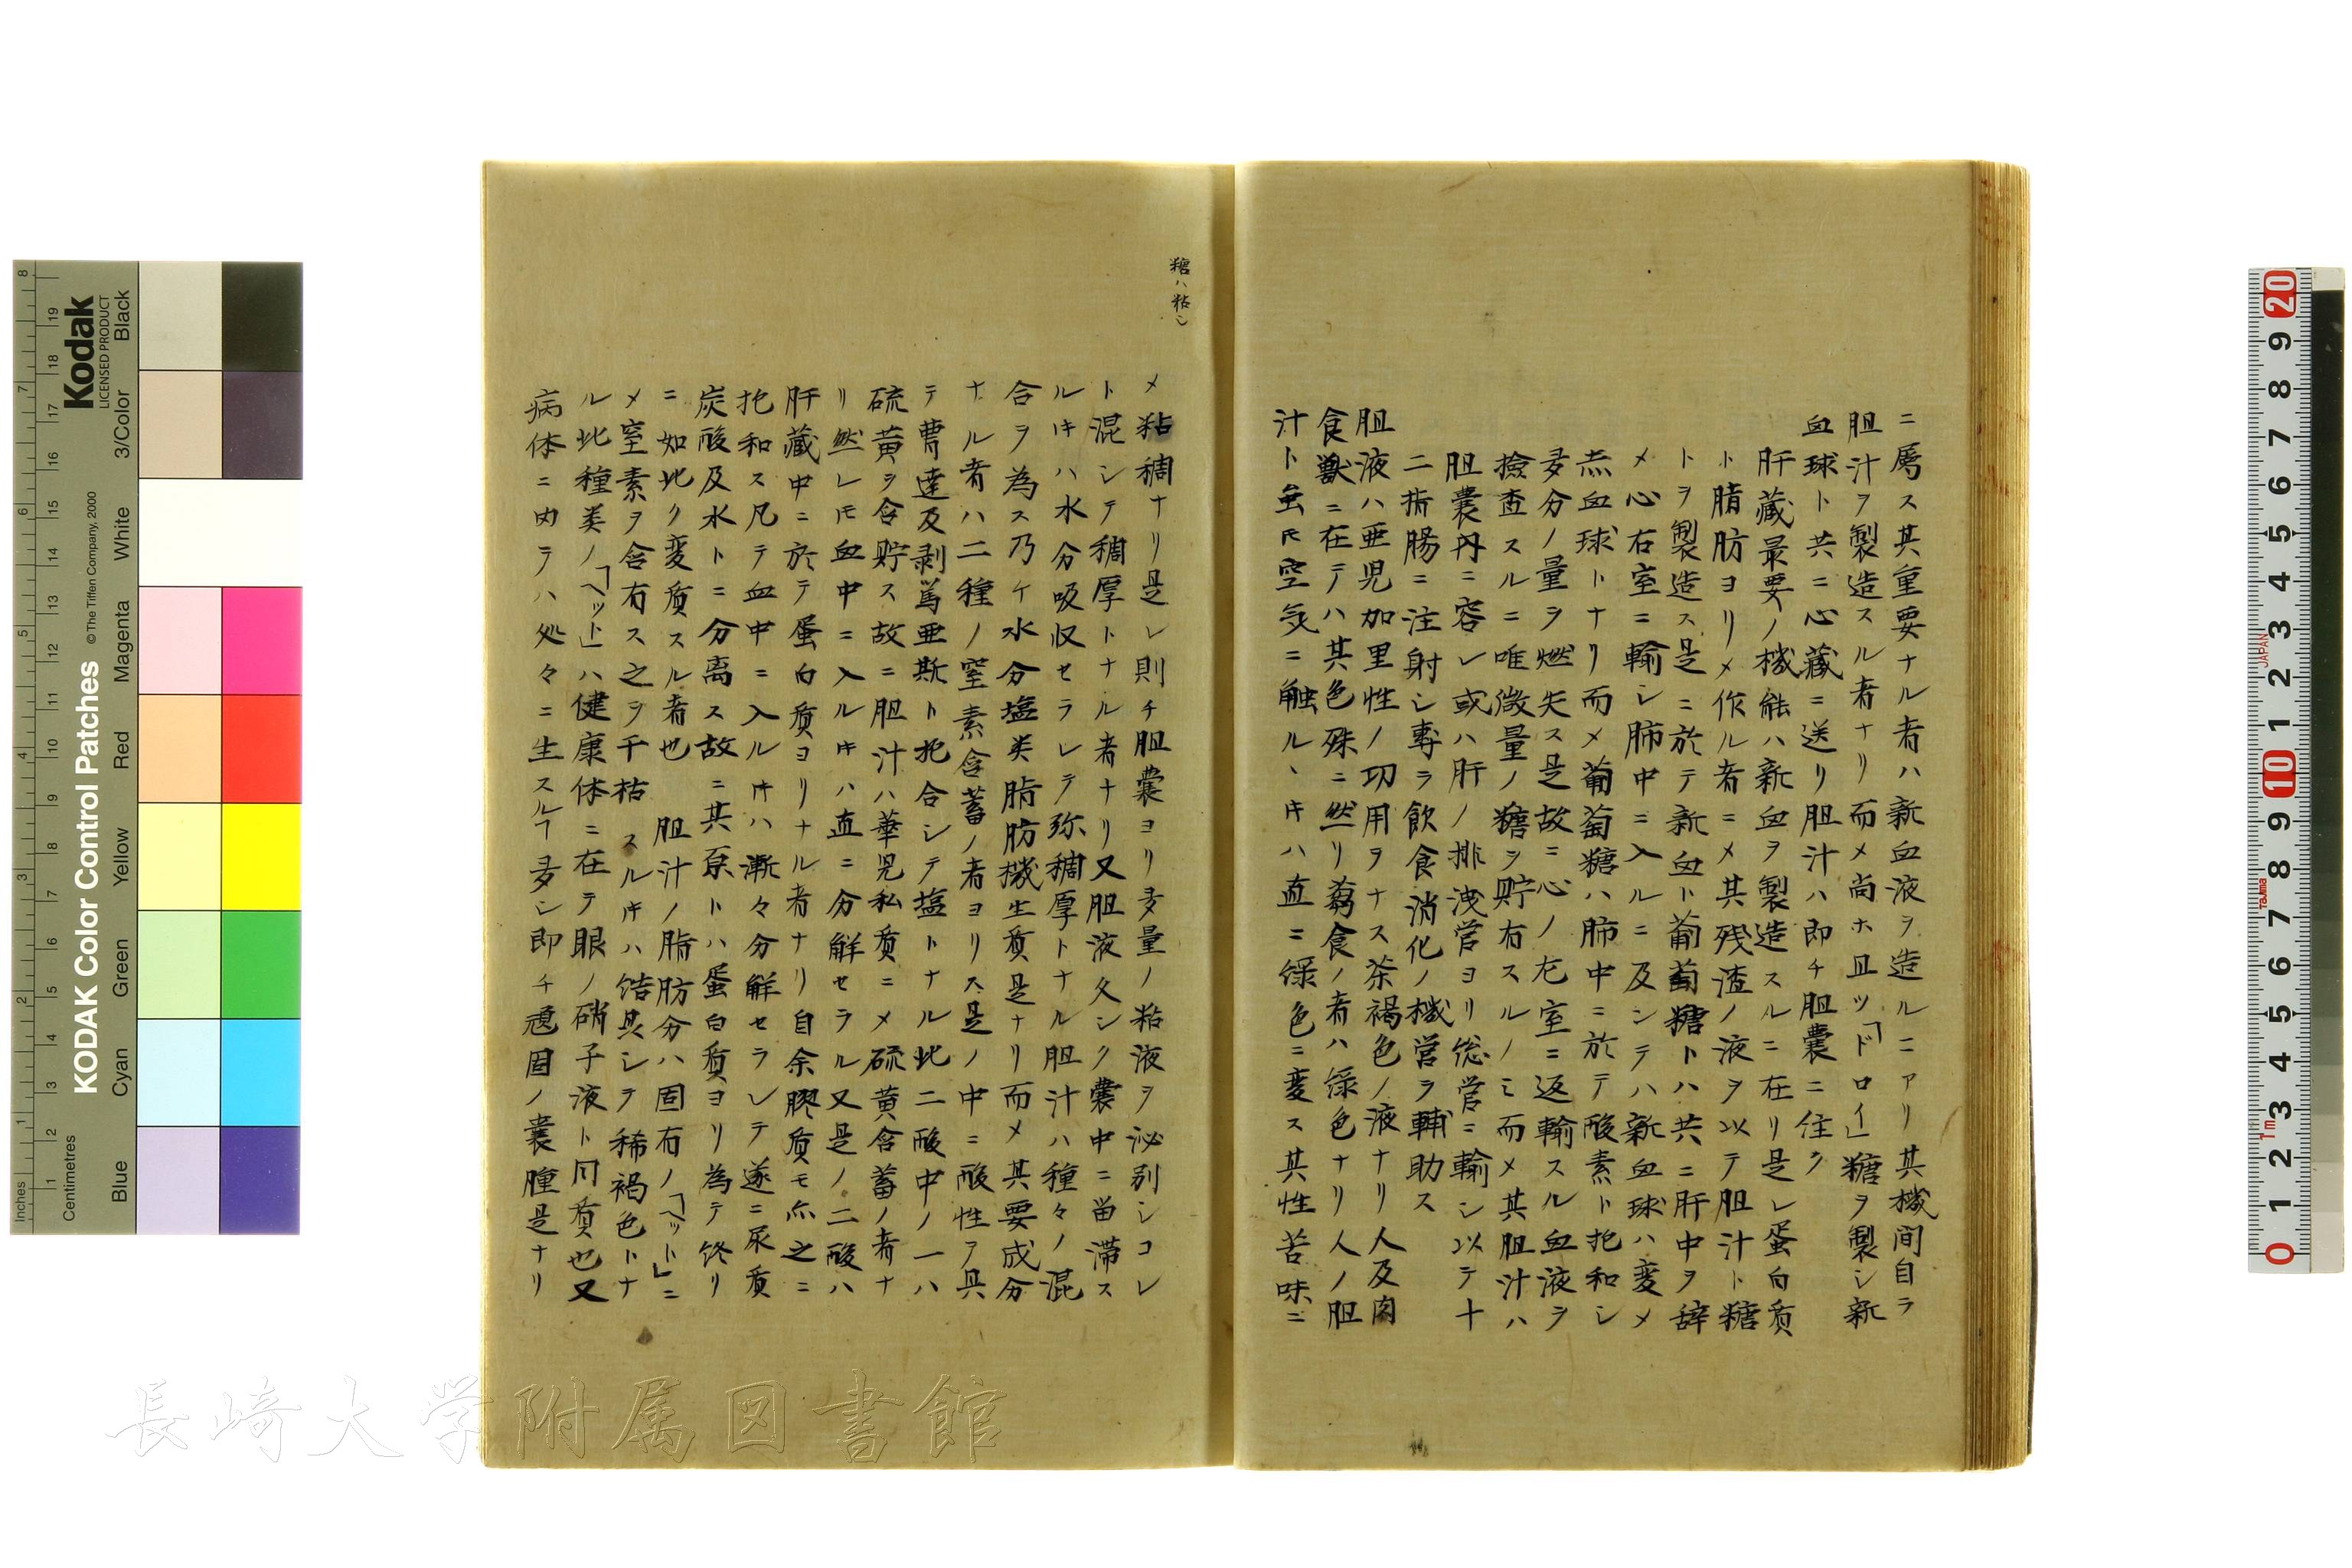 ニ属ス其重要ナル者ハ新血液ヲ造ルニアリ其機間自ラ
胆汁ヲ製造スル者ナリ而メ尚ホ且ツ「ドロイ」糖ヲ製シ新
血球ト共ニ心藏ニ送リ胆汁ハ即チ胆嚢ニ住ク
肝藏最要ノ機能ハ新血ヲ製造スルニ在リ是レ蛋白质
ト脂肪ヨリメ作ル者ニメ其残渣ノ液ヲ以テ胆汁ト糖
トヲ製造ス是ニ於テ新血ト葡萄糖トハ共ニ肝中ヲ辞
メ心右室ニ輸シ肺中ニ入ルニ及ンテハ新血球ハ変メ
赤血球トナリ而メ葡萄糖ハ肺中ニ於テ酸素ト抱和シ
多分ノ量ヲ燃失ス是故ニ心ノ左室ニ返輸スル血液ヲ
撿査スルニ唯微量ノ糖ヲ貯有スルノミ而メ其胆汁ハ
胆嚢内ニ容レ或ハ肝ノ排洩管ヨリ総管ニ輸シ以テ十
二指腸ニ注射シ専ラ飲食消化ノ機営ヲ輔助ス
胆液ハ亜児加里性ノ功用ヲナス茶褐色ノ液ナリ人及肉
食獣ニ在テハ其色殊ニ然リ蒭食ノ者ハ緑色ナリ人ノ胆
汁ト虽𪜈空気ニ触ルヽ𪜈ハ直ニ緑色ニ変ス其性苦味ニ
糖ハ粘シ
メ粘稠ナリ是レ則チ胆嚢ヨリ多量ノ粘液ヲ泌別シコレ
ト混シテ稠厚トナル者ナリ又胆液久シク嚢中ニ留滞ス
ル𪜈ハ水分吸収セラレテ弥稠厚トナル胆汁ハ種々ノ混
合ヲ為ス乃ケ水分塩类脂肪機生质是ナリ而メ其要成分
ナル者ハ二種ノ窒素含蓄ノ者ヨリス是ノ中ニ酸性ヲ具
テ曹達及剥篤亜斯ト抱合シテ塩トナル此二酸中ノ一ハ
硫黄ヲ含貯ス故ニ胆汁ハ華児私质ニメ硫黄含蓄ノ者ナ
リ然レ𪜈血中ニ入ル𪜈ハ直ニ分解セラル又是ノ二酸ハ
肝藏中ニ於テ蛋白质ヨリナル者ナリ自余膠质モ亦之ニ
抱和ス凡テ血中ニ入ル𪜈ハ漸々分解セラレテ遂ニ尿质
炭酸及水トニ分离ス故ニ其原トハ蛋白质ヨリ為テ终リ
ニ如此ク変质スル者也 胆汁ノ脂肪分ハ固有ノ「ヘット」ニ
メ窒素ヲ含有ス之ヲ干枯スル𪜈ハ结晶シテ稀褐色トナ
ル此種类ノ「ヘット」ハ健康体ニ在テ眼ノ硝子液ト同质也又
病体ニ由テハ処々ニ生スルヿ多シ即チ頑固ノ嚢腫是ナリ